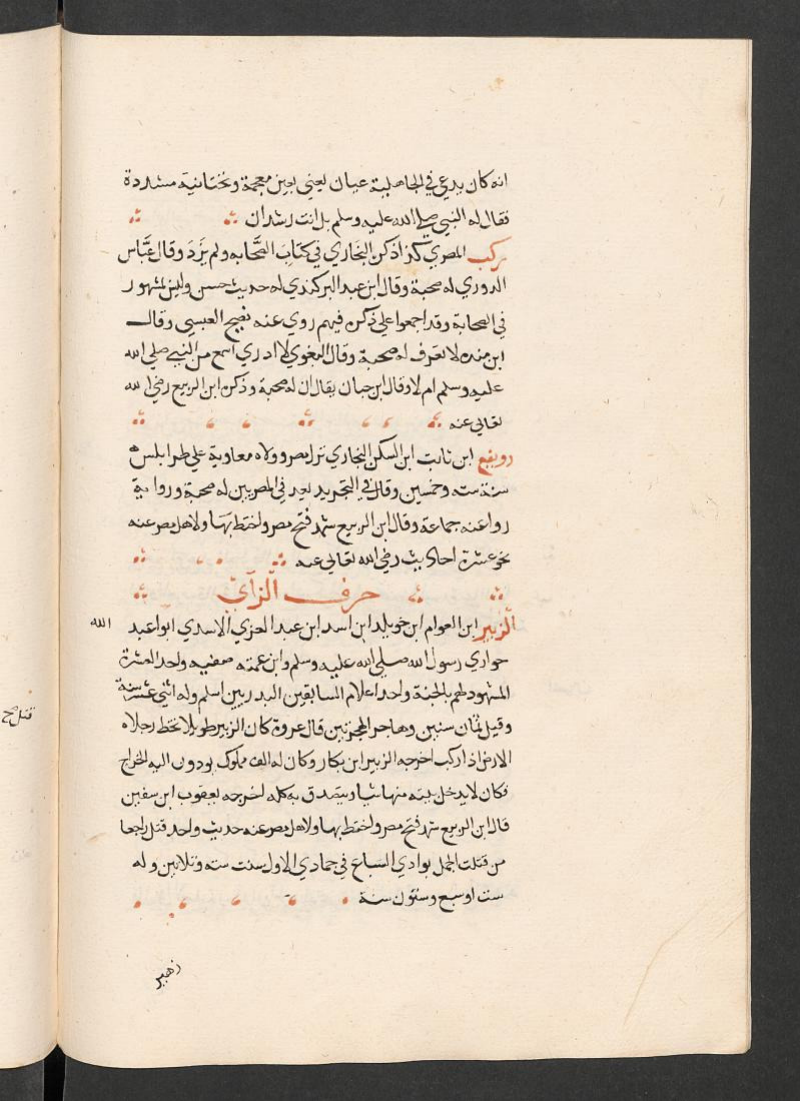 انه كان يدعي في الجاهلية عيان يعني بعين معجمة وتحتانية مشددة
فقال له النبي صلي الله عليه وسلم بل انت رشدان
ركب المصري كذا ذكره البخاري في كتاب الصَّحابه ولم يَزِدَ وقال عَبَّاس
الدوري له صحبة وقال ابن عبد البر كندي له حديث حسن وليس بمشهور
في الصحابة وقد اجمعوا علي ذكره فيهم روي عنه نصيح العبسي وقال
ابن منده لا نعرف له صحبة وقال البغوي لا ادري اسمع من النبي صلي الله
عليه وسلم ام لا وقال ابن حبان يقال ان له صحبة وذكره ابن الربيع رضي الله
تعالي عنه
رويفع ابن ثابت ابن السكن النجاري نزل مصر وولاه معاوية علي طرابلس
سنة ست وخمسين وقال في التجريد يعد في المصريين له صحبة ورواية
روا عنه جماعة وقال ابن الربيع شهد فتح مصر واختط بها ولاهل مصر عنه
نحو عشرة احاديث رضي الله تعالي عنه
حرف الزاي
الزبير ابن العوام ابن خويلد ابن اسد ابن عبد العزي الاسدي ابوا عبد الله
حواري رسول الله صلي الله عليه وسلم وابن عمته صفيه واحد العشرة
المشهود لهم بالجنة واحد اعلام السابقين البدريين اسلم وله اثني عشر سنة
وقيل ثمان سنين وهاجر الهجرتين قال عروة كان الزبير طويلا تخط رجلاه
الارض اذا ركب اخرجه الزبير ابن بكار وكان له الف مملوك يودون اليه الخراج
فكان لا يدخل بيته منها شيا ويتصدق به كله اخرجه يعقوب ابن سفين
قال ابن الربيع شهد فتح مصر واختط بها ولاهل مصر عنه حديث واحد قتل راجعا
من قتلت الجمل بوادي السباع في جمادي الاول سنت سته وثلاثين وله
ست او سبع وستون سنة
زهير